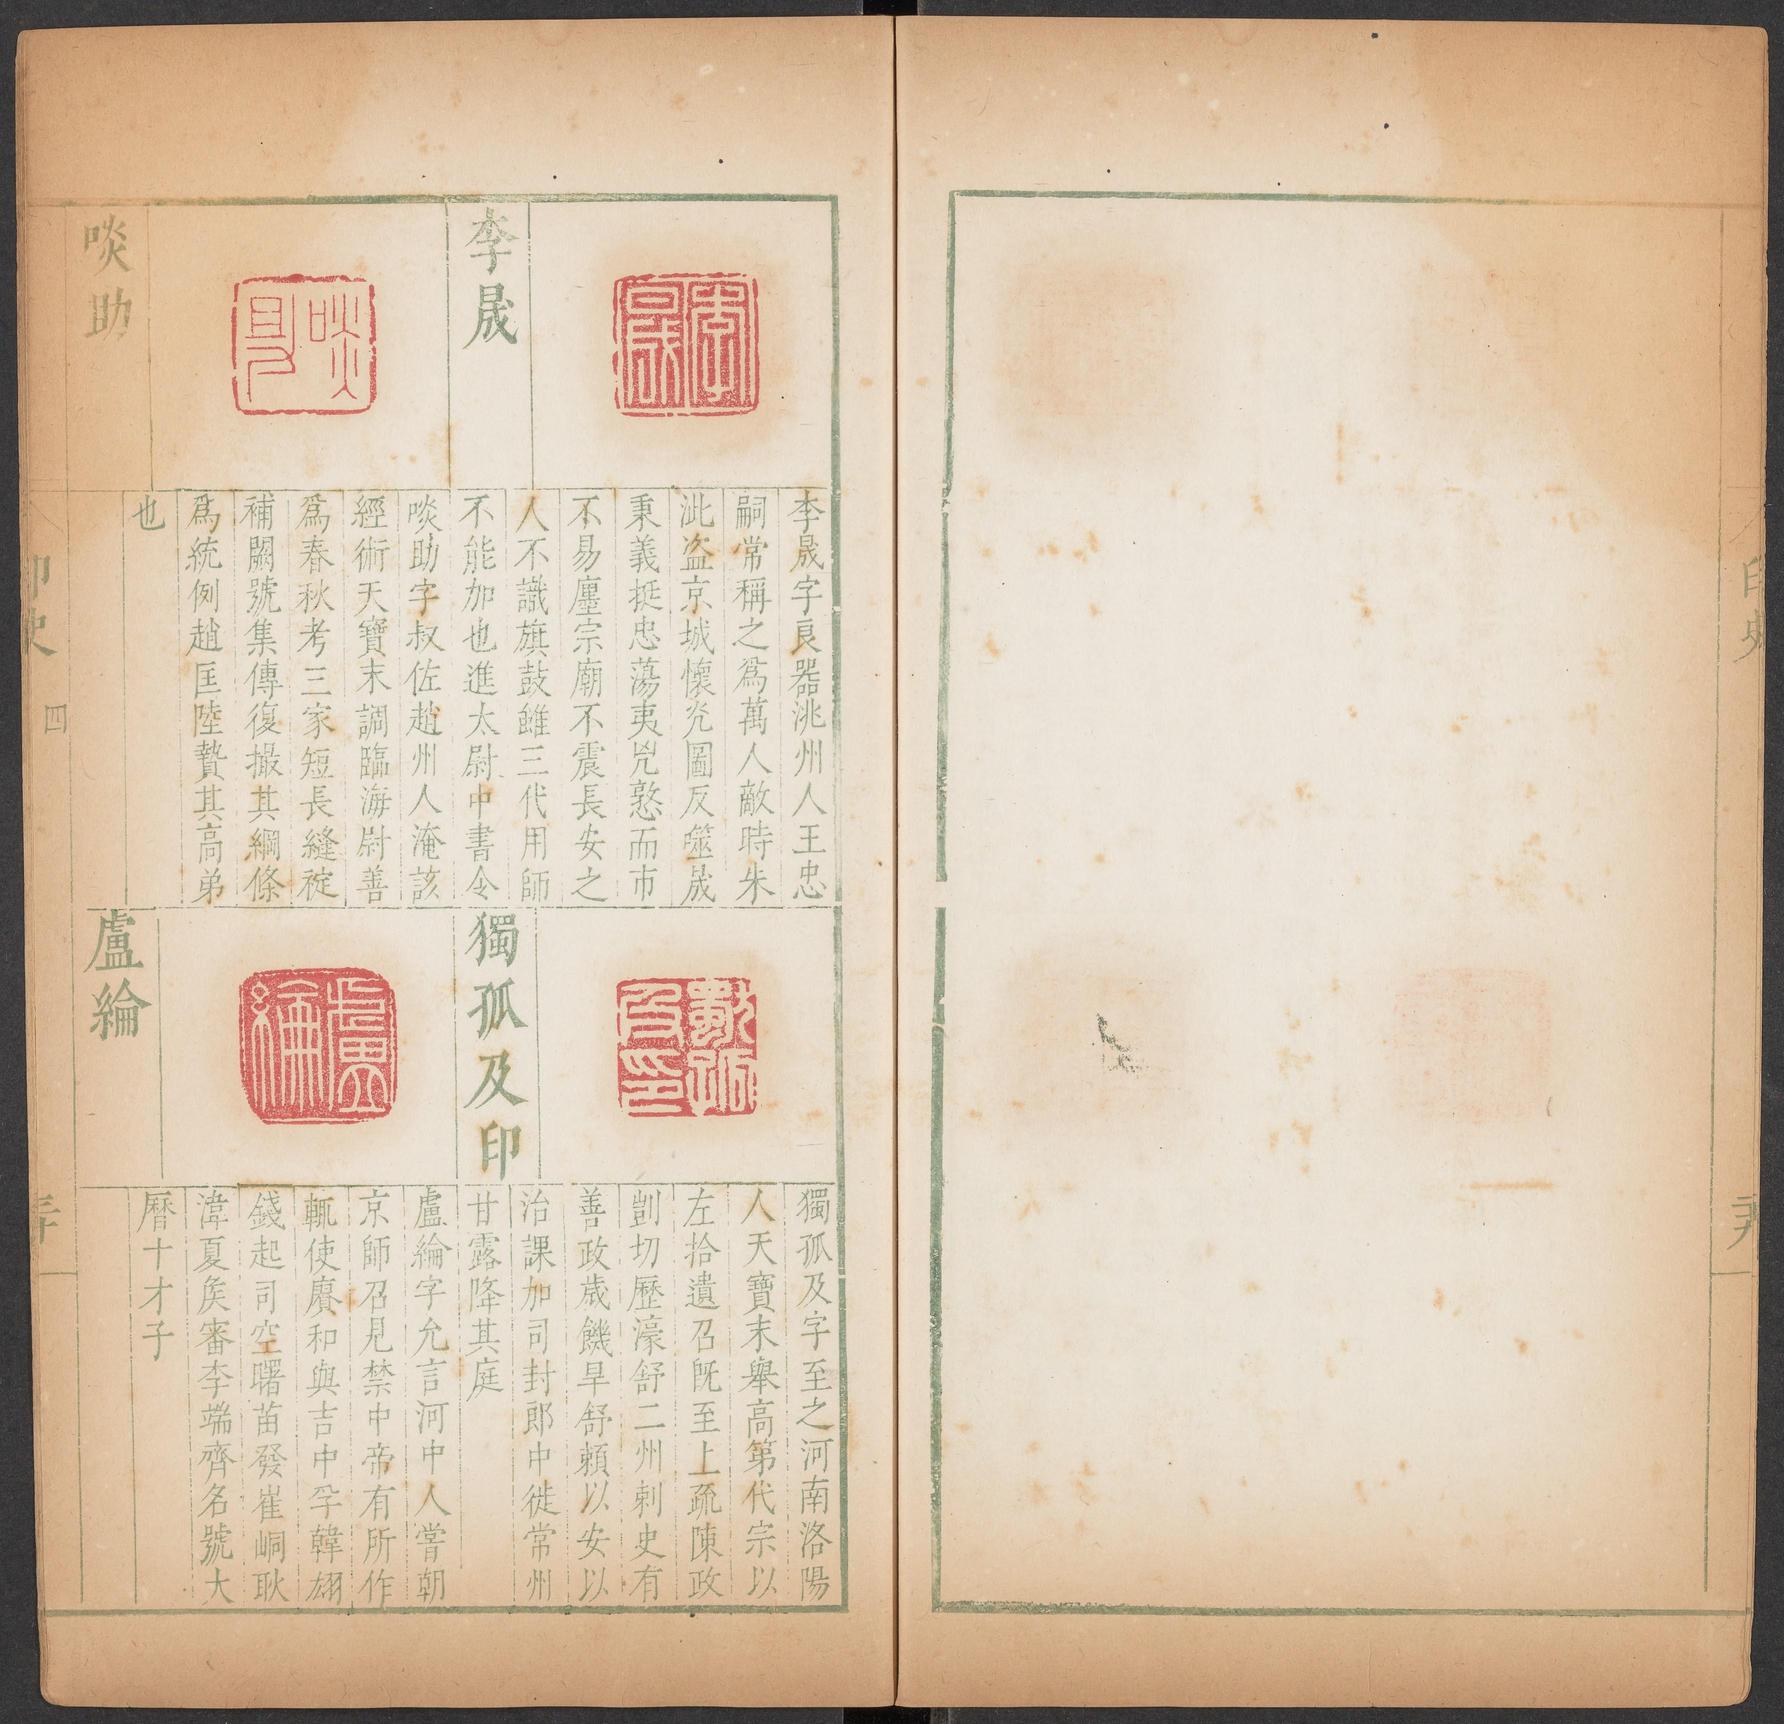 李晟
李晟字良器洮州人王忠
嗣常稱之為萬人敵時朱
泚盗京城懷光圖反噬晟
秉義挺忠蕩夷兇憝而市
不易廛宗廟不震長安之
人不識旗鼓雖三代用師
不能加也進太尉中書令
啖助
啖助字叔佐趙州人淹該
經術天寶末調臨海尉善
爲春秋考三家短長縫䘺
補闕號集傳復撮其綱條
爲統例趙匡陸贄其高弟
也
獨孤及印
獨孤及字至之河南洛陽
人天寶末舉高第代宗以
左拾遺召旣至上疏陳政
剴切歷濠舒二州刺史有
善政歲饑旱舒賴以安以
治課加司封郎中徙常州
甘露降其庭
盧綸
盧綸字允言河中人嘗朝
京師召見禁中帝有所作
輒使賡和與吉中孚韓翃
錢起司空曙苗發崔峒耿
湋夏矦審李端齊名號大
曆十才子
印史
四
三十
印史